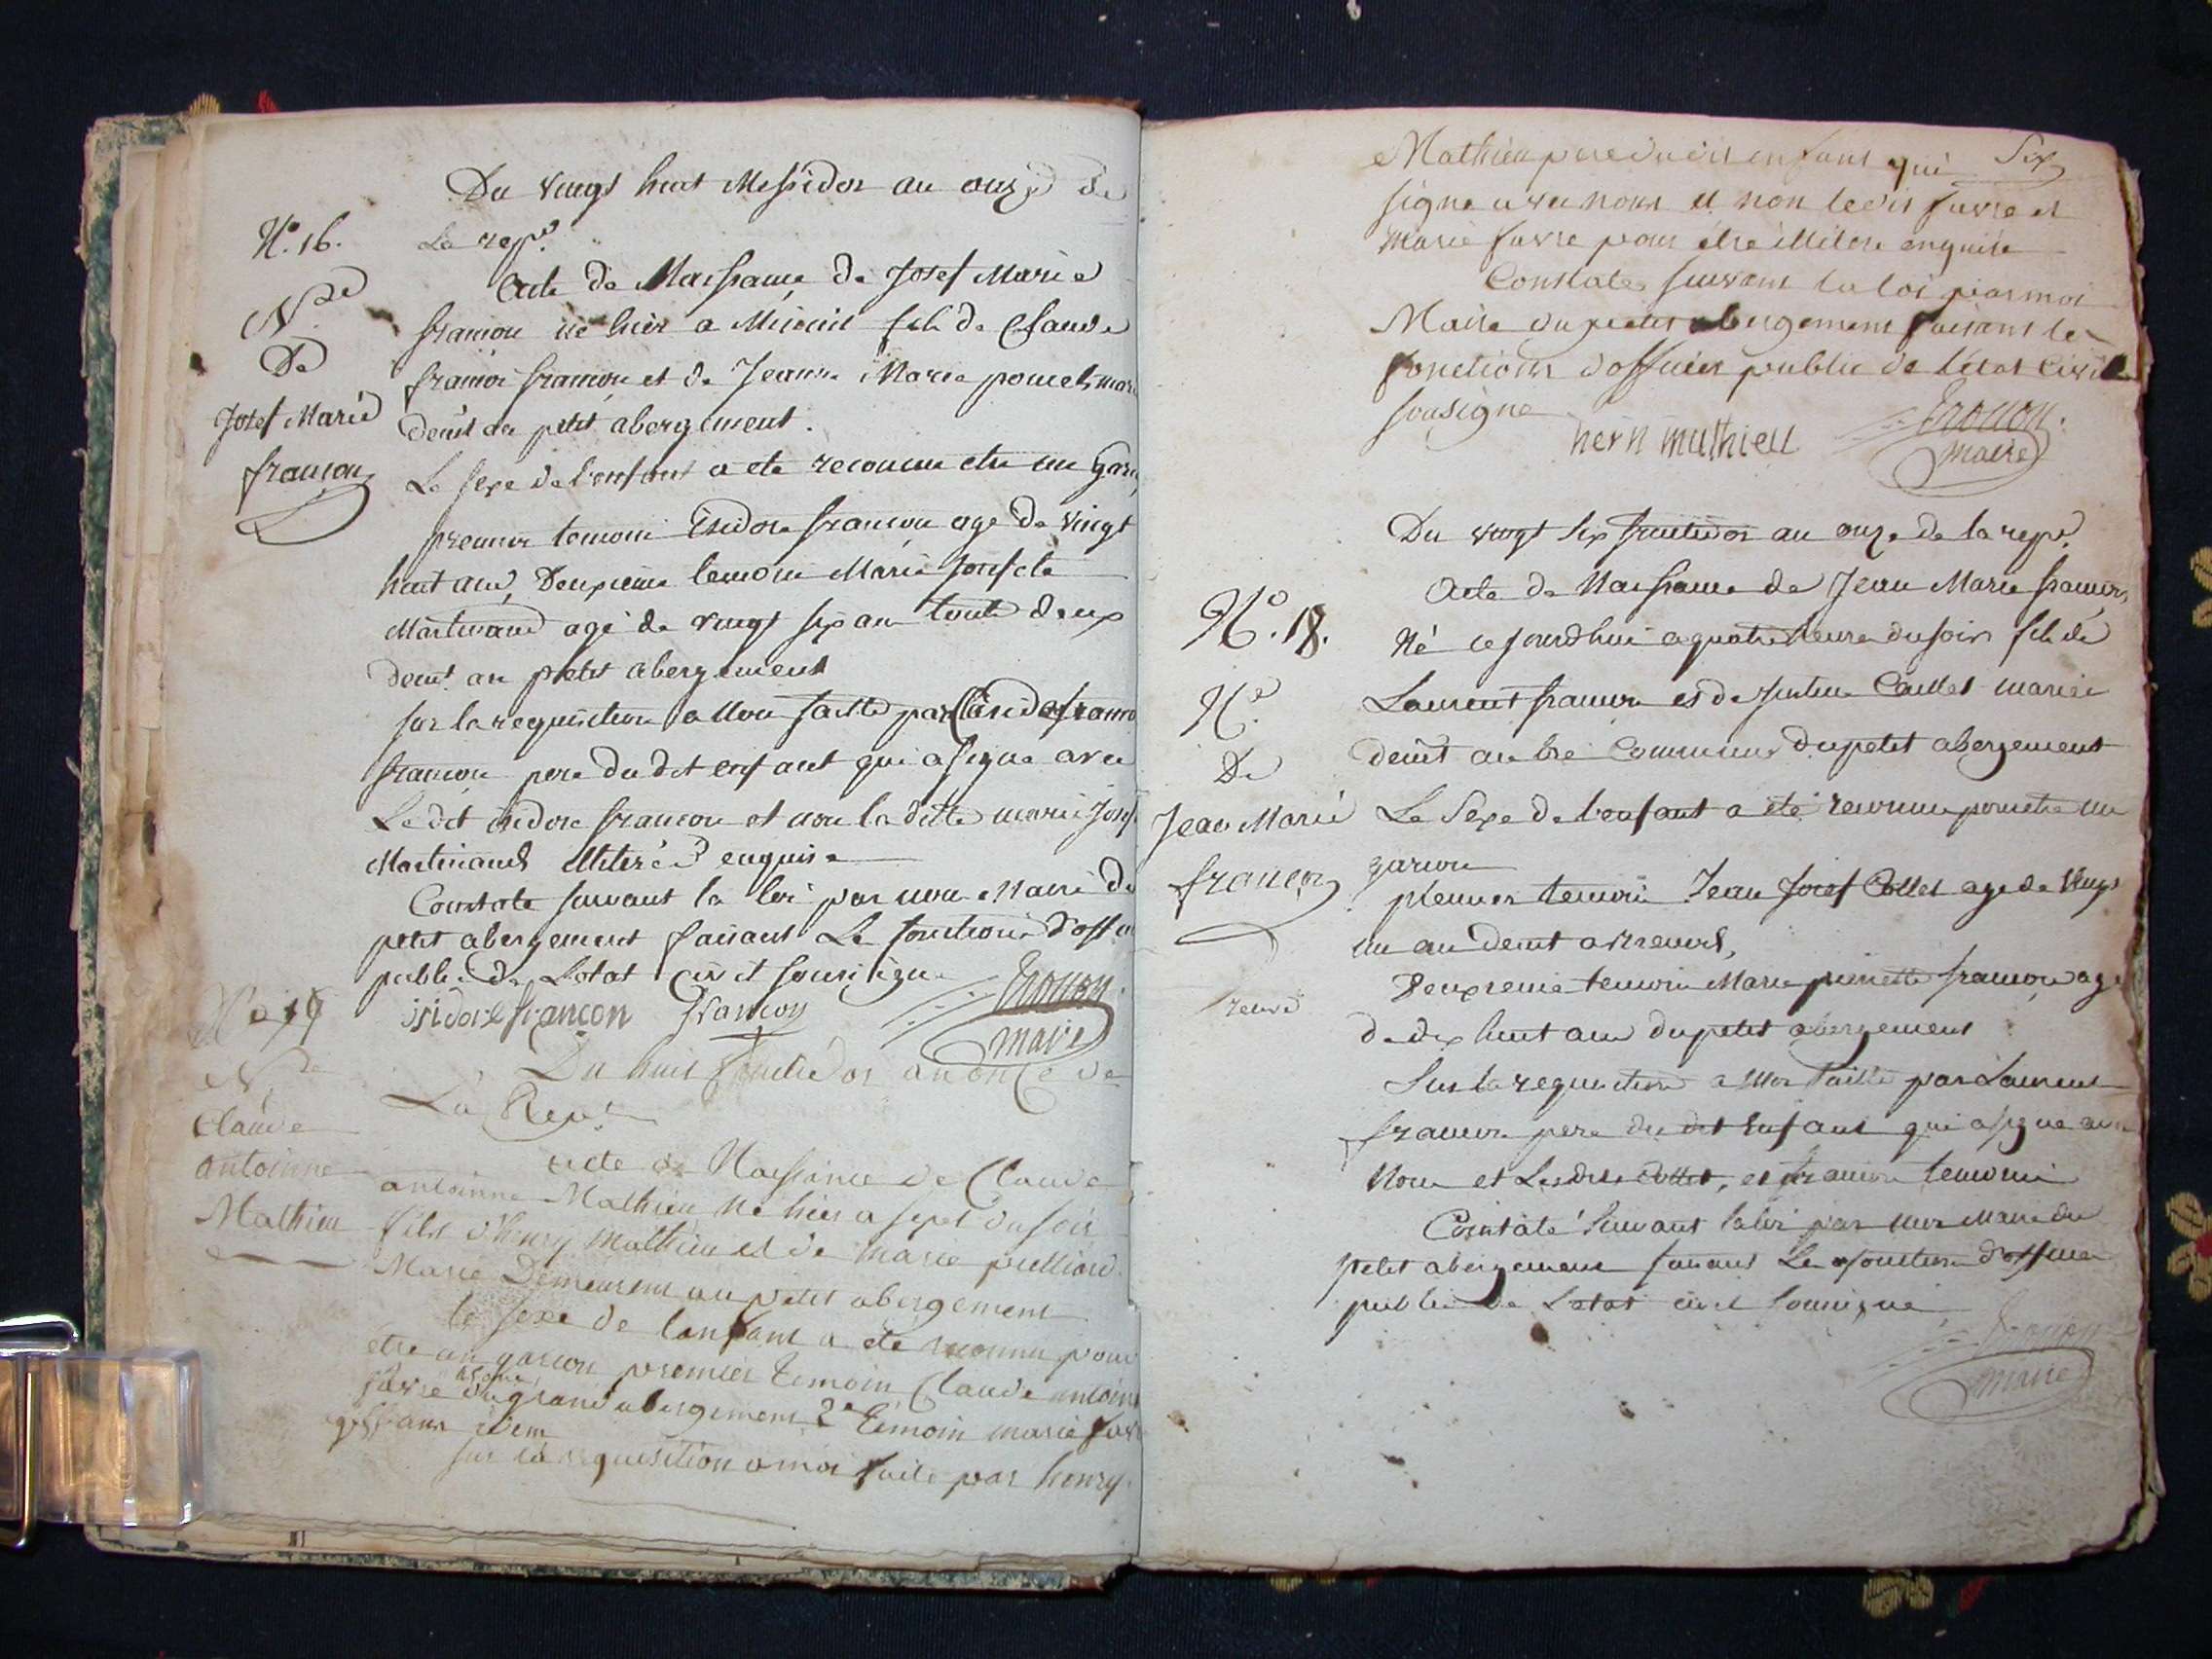 Du vingt huit Messidor an onze de
N.° 16.
La rep.e
Acte de Naissance de Josef Marie
N.ce
francon né hier a Midi fils de Claude
De
francoi francon et de Jeanne Marie poncet, mari
Josef Marie
demt au petit abergement.
francon
Le sexe de l'enfant a ete reconnu etre un Garc
premier temoin Isidore francon age de vingt
huit ans, Deuxieme temoin Marie Josefete
Martinand agé de vingt six an toute deux
demt. au petit abergement
sur la requisition a Nou faitte par Claude fran
francon pere du dit enfant qui a signe avec
Le dit isidore francon et non la ditte marie Josef
Martinand illiteré enquise
Constate suivant la loi par nou Maire du
petit abergement faisant Le fonctions d'offi
public de L'etat civil sousigne
isidore francon francon
maire
N.° 17
Du huit fructidor an onze de
La Rep.e
N.ce de
Claude
antoinne
Mathieu
acte de Naissance de Claude
antoinne Mathieu Né hier a sept du soir
fils d'henry Mathieu et de marie
Marie Demeurent au petit abergement
le sexe de lenfant a ete reconnu pour
etre un garcon premier temoin Claude antoine
favre du grand abergement 2e temoin marie favr
ans idem
sur la requisition a moi faite par henry
Six
Mathieu pere du dit enfant qui
signe avec nous et non ledit favre et
Marie favre pour être illitere enquise
Constater suivant la loi par moi
Maire du petit abergement faisant les
fonctions d'officier public de l'état Civil
sousigne
henri mathieu
maire
Du vingt six fructidor an onze de la rep.e
Acte de Naissance de Jean Marie francon
N.° 18.
Né ce jourdhui a quatre heure du soir fils de
N.e
Laurent francon et de Justine Collet mariés
De
demt au lié Commune du petit abergement
Jean Marie
Le Sexe de l'enfant a été reconnu pour etre un
francon
garcon
premier temoin Jean Josef Collet age de Vingt
un an demt a
Deuxieme temoin Marie pierrette francon age
de dix huit ans du petit abergement
Sur la requisition a Moi faitte par Laurent
francon pere du dit Enfant qui a signe avec
Nou et Lesdits Collet, et francon temoins
Constaté Suivant la loi par moi Maire du
petit abergement faisant Les fonction d'officier
public de L'etat civil sousigne
maire